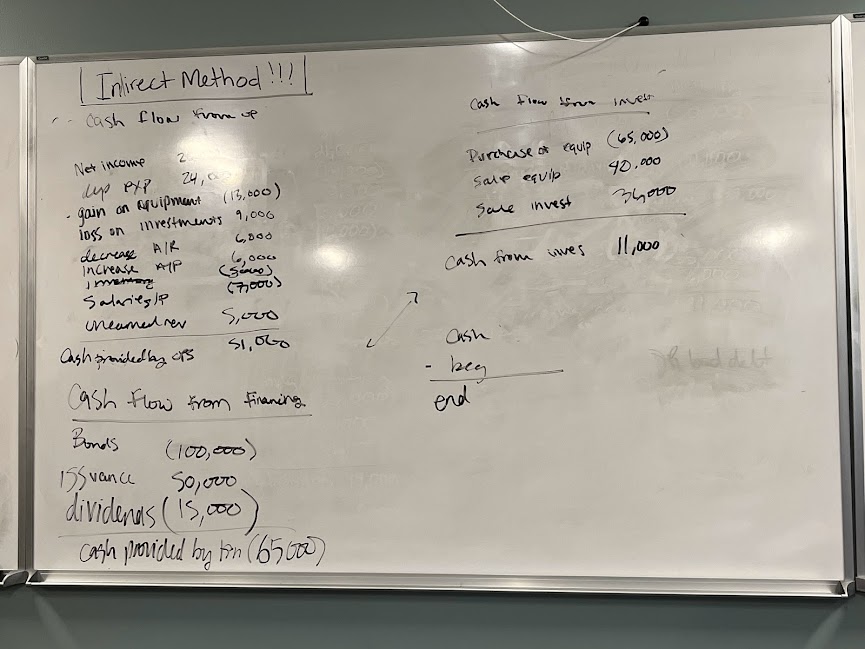 Indirect Method!!!
cash flow from op
Net income 2
dep exp 24,0
- gain on equipment (13,000)
loss on investments 9,000
decrease A/R 6,000
increase A/P 6,000
(5000)
Salaries/P (7,000)
unearned rev 5,000
Cash provided by ops 51,000
Cash Flow From Financing
Bonds (100,000)
issuance 50,000
dividends (15,000)
cash provided by fin (65000)
Cash Flow from invest
Purchase of equip (65,000)
Sale equip 40,000
Sale invest 36,000
Cash from inves 11,000
Cash
- beg
end